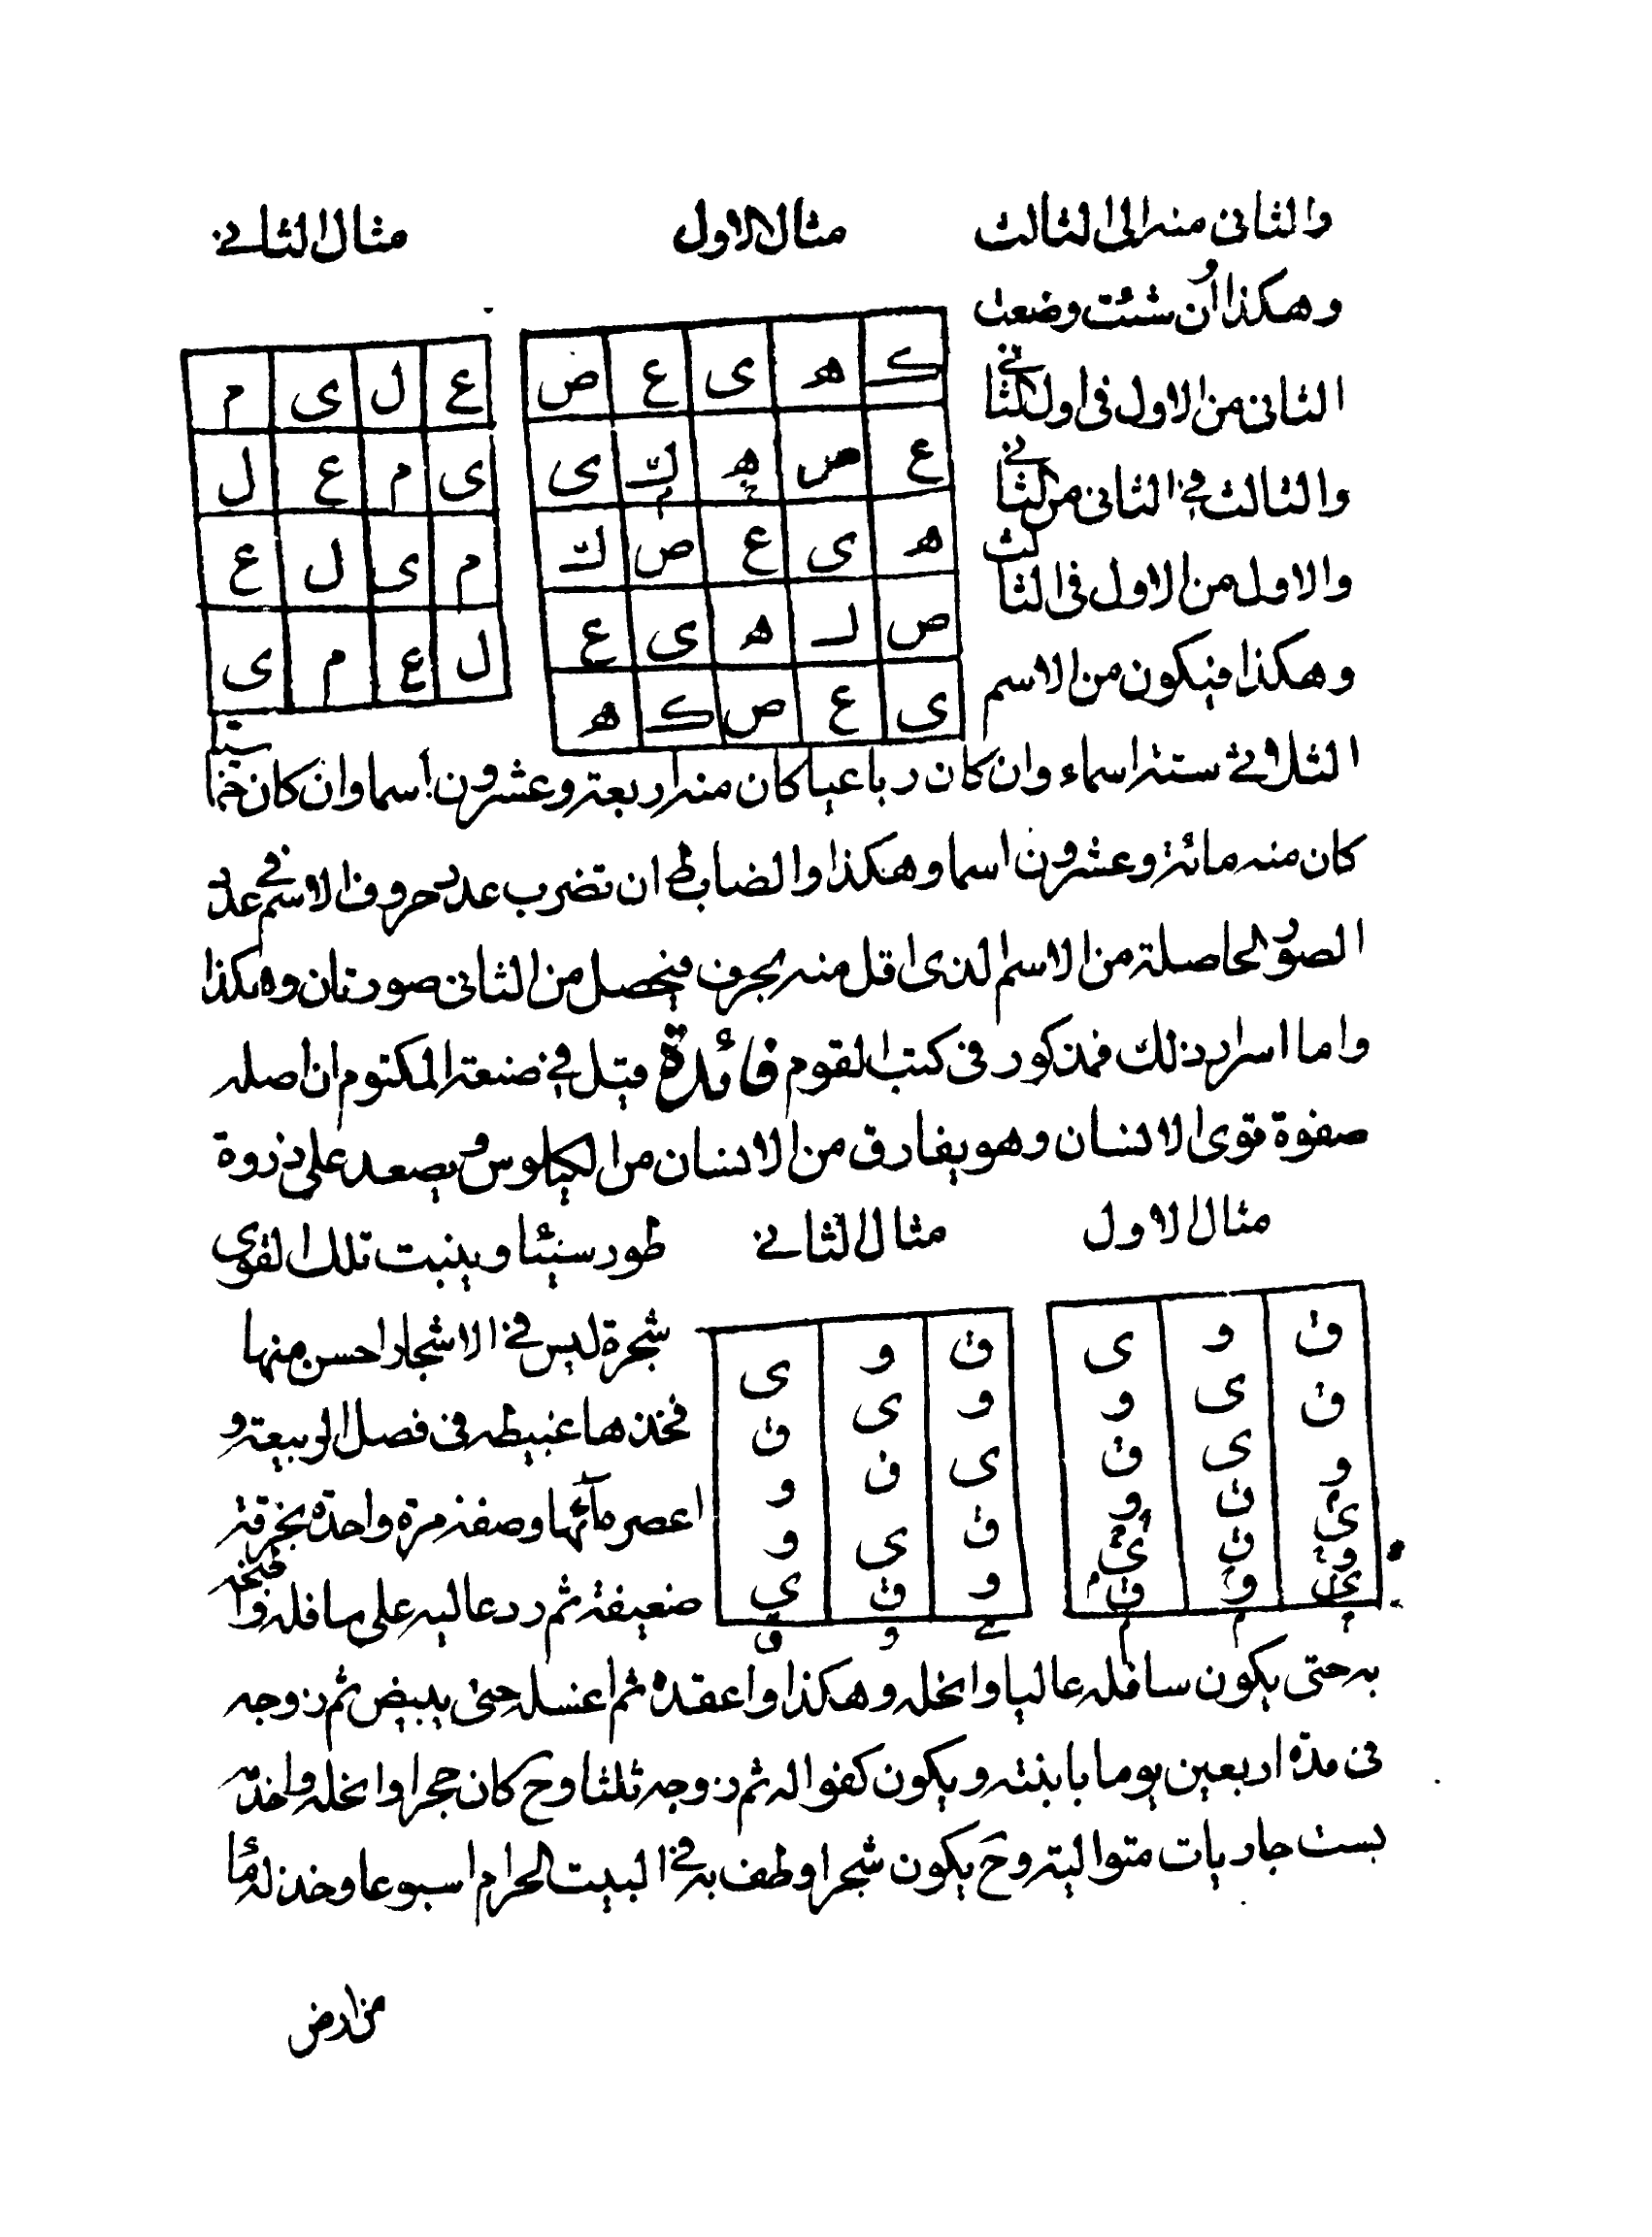 والثانى منه الى الثالث
مثال الاول
مثال الثانے
وهكذا وان شئت وضعت
الثانى من الاول فى اول الثانے
والثالث فے الثانى من الثانے
والاول من الاول فى الثالث
وهكذا فيكون من الاسم
ك ه ى ع ص
ع ص ه ك ى
ه ى ع ص ك
ص ك ه ى ع
ى ع ص ك ه
ع ل ى م
ى م ع ل
م ى ل ع
ل ع م ى
الثلاثے ستة اسماء وان كان رباعيا كان منه اربعة وعشرون اسما وان كان خماسيا
كان منه مائة وعشرون اسما وهكذا والضابط ان تضرب عدد حروف الاسم فے عدد
الصور الحاصلة من الاسم الذى اقل منه بحرف فيحصل من الثانى صورتان وهكذا
واما اسرار ذلك فمذكور فى كتب القوم فائدة قيل فے صنعة المكتوم ان اصله
صفوة قوى الانسان وهو يفارق من الانسان من الكيلوس ويصعد على ذروة
مثال الاول
مثال الثانے
طور سنينا وينبت تلك القوى
شجرة ليس فے الاشجار احسن منها
فخذها غبيطه فى فصل الربيعة و
اعصر مآئها وصفه مرة واحدة بخرقة
ضعيفة ثم رد عاليه على سافله واطبخه
ق و ى
ق ى و
و ى ق
ى ق و
و ق ى
ى و ق
ق و ى
و ى ق
ى ق و
ق ى و
و ق ى
ى و ق
به حتى يكون سافله عاليا وانخله وهكذا واعقده ثم اغسله حتى يبيض ثم زوجه
فى مدة اربعين يوما بابنته ويكون كفوا له ثم زوجه ثلثا وح كان حجرا وانخله واخدمه
بست جاريات متوالية وح يكون شجرا وطف به فے البيت الحرام اسبوعا وخذ له مائا
من ارض